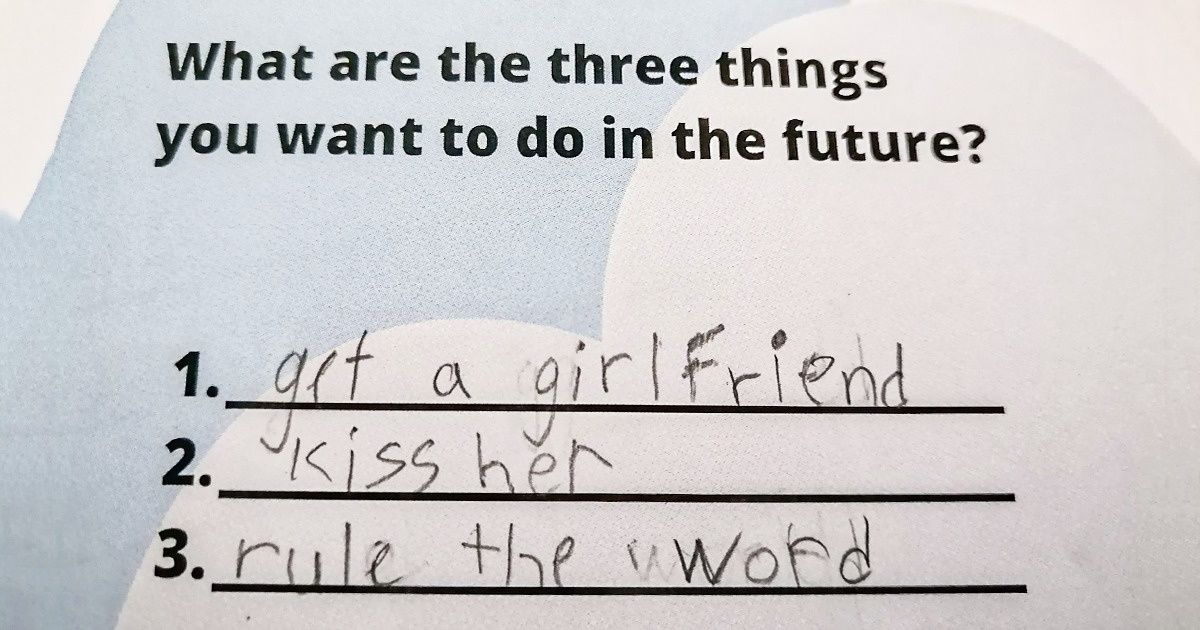 What are the three things
you want to do in the future?
1. get a girlfriend
2. kiss her
3. rule the word